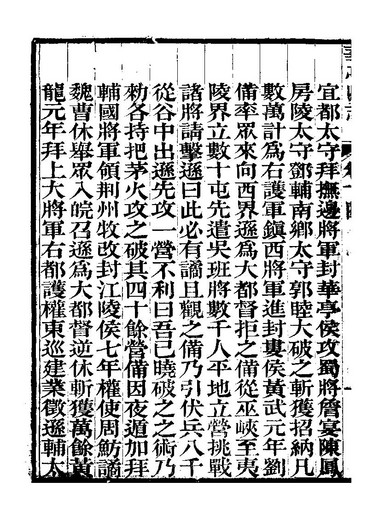 宜都太守拜撫邊將軍封華亭侯攻蜀將詹宴陳鳳
房陵太守鄧輔南鄉太守郭睦大破之斬獲招納凡
數萬計為右護軍鎮西將軍進封婁侯黃武元年劉
備率眾來向西界遜為大都督拒之備從巫峽至夷
陵界立數十屯先遣吳班將數千人平地立營挑戰
諸將請擊遜曰此必有譎且觀之備乃引伏兵八千
從谷中出遜先攻一營不利曰吾已曉破之之術乃
勑各持把茅火攻之破其四十餘營備因夜遁加拜
輔國將軍領荆州牧改封江陵侯七年權使周魴譎
魏曹休舉眾入皖召遜為大都督逆休斬獲萬餘黃
龍元年拜上大將軍右都護權東巡建業徵遜輔太